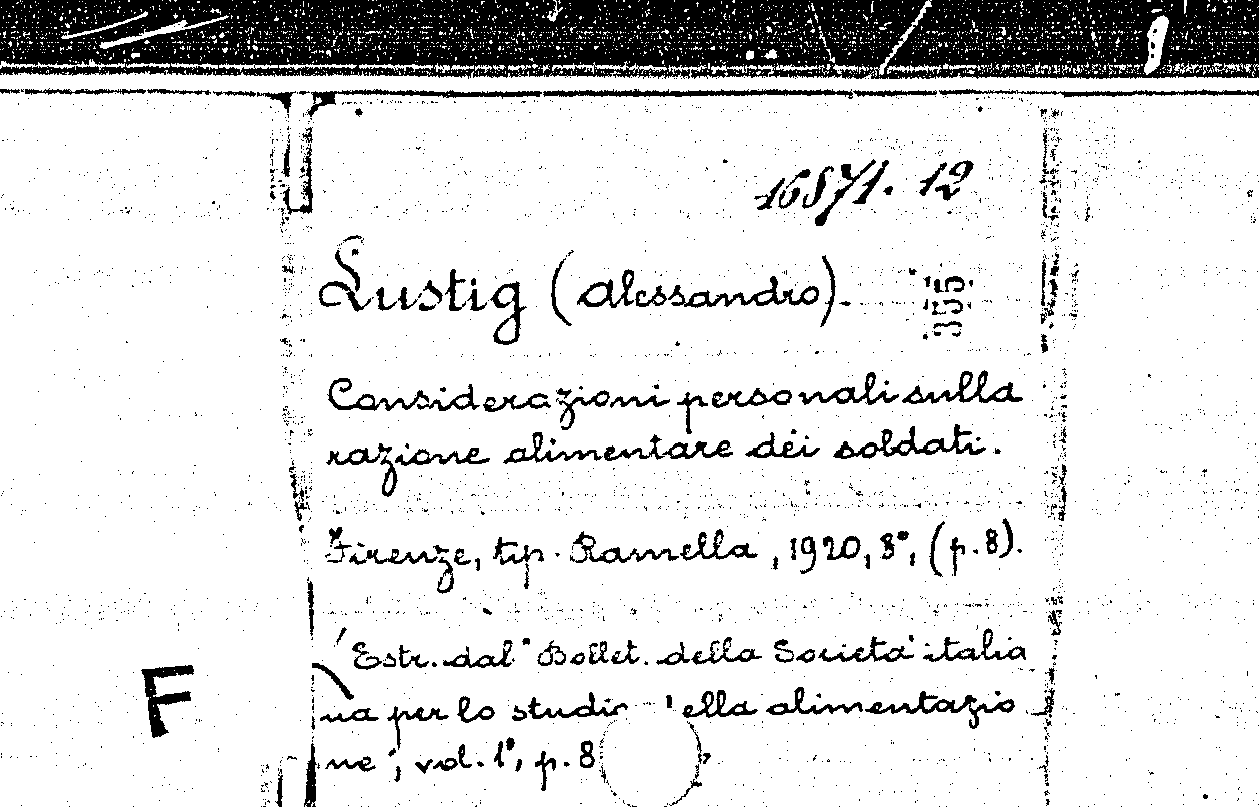 16871. 12
Lustig (Alessandro).
355
Considerazioni personali sulla
razione alimentare dei soldati.
Firenze, tip. Ramella, 1920, 8°, (p. 8).
Estr. dal "Bollet. della Società italia
na per lo studio della alimentazio
ne", vol. 1°, p. 8
F